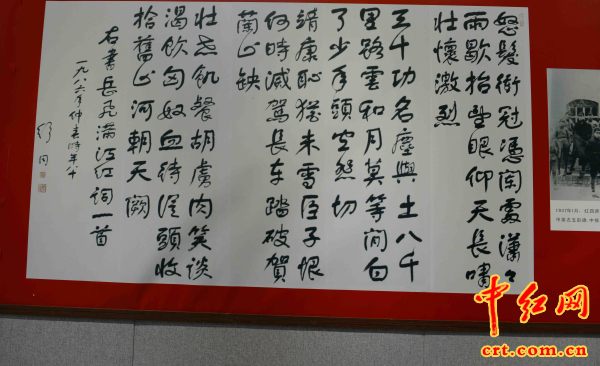 怒髮衝冠憑闌處瀟々
雨歇抬望眼仰天長嘯
壯懷激烈
三千功名塵與土八千
里路雲和月莫等閒白
了少年頭空悲切
靖康恥猶未雪臣子恨
何時滅駕長車踏破賀
蘭山缺
壯志飢餐胡虜肉笑談
渴飲匈奴血待從頭收
拾舊山河朝天闕
右書岳飛滿江紅詞一首
一九八六年仲春時年八十
舒同
1937年1月，红四
中红网
crt.com.cn